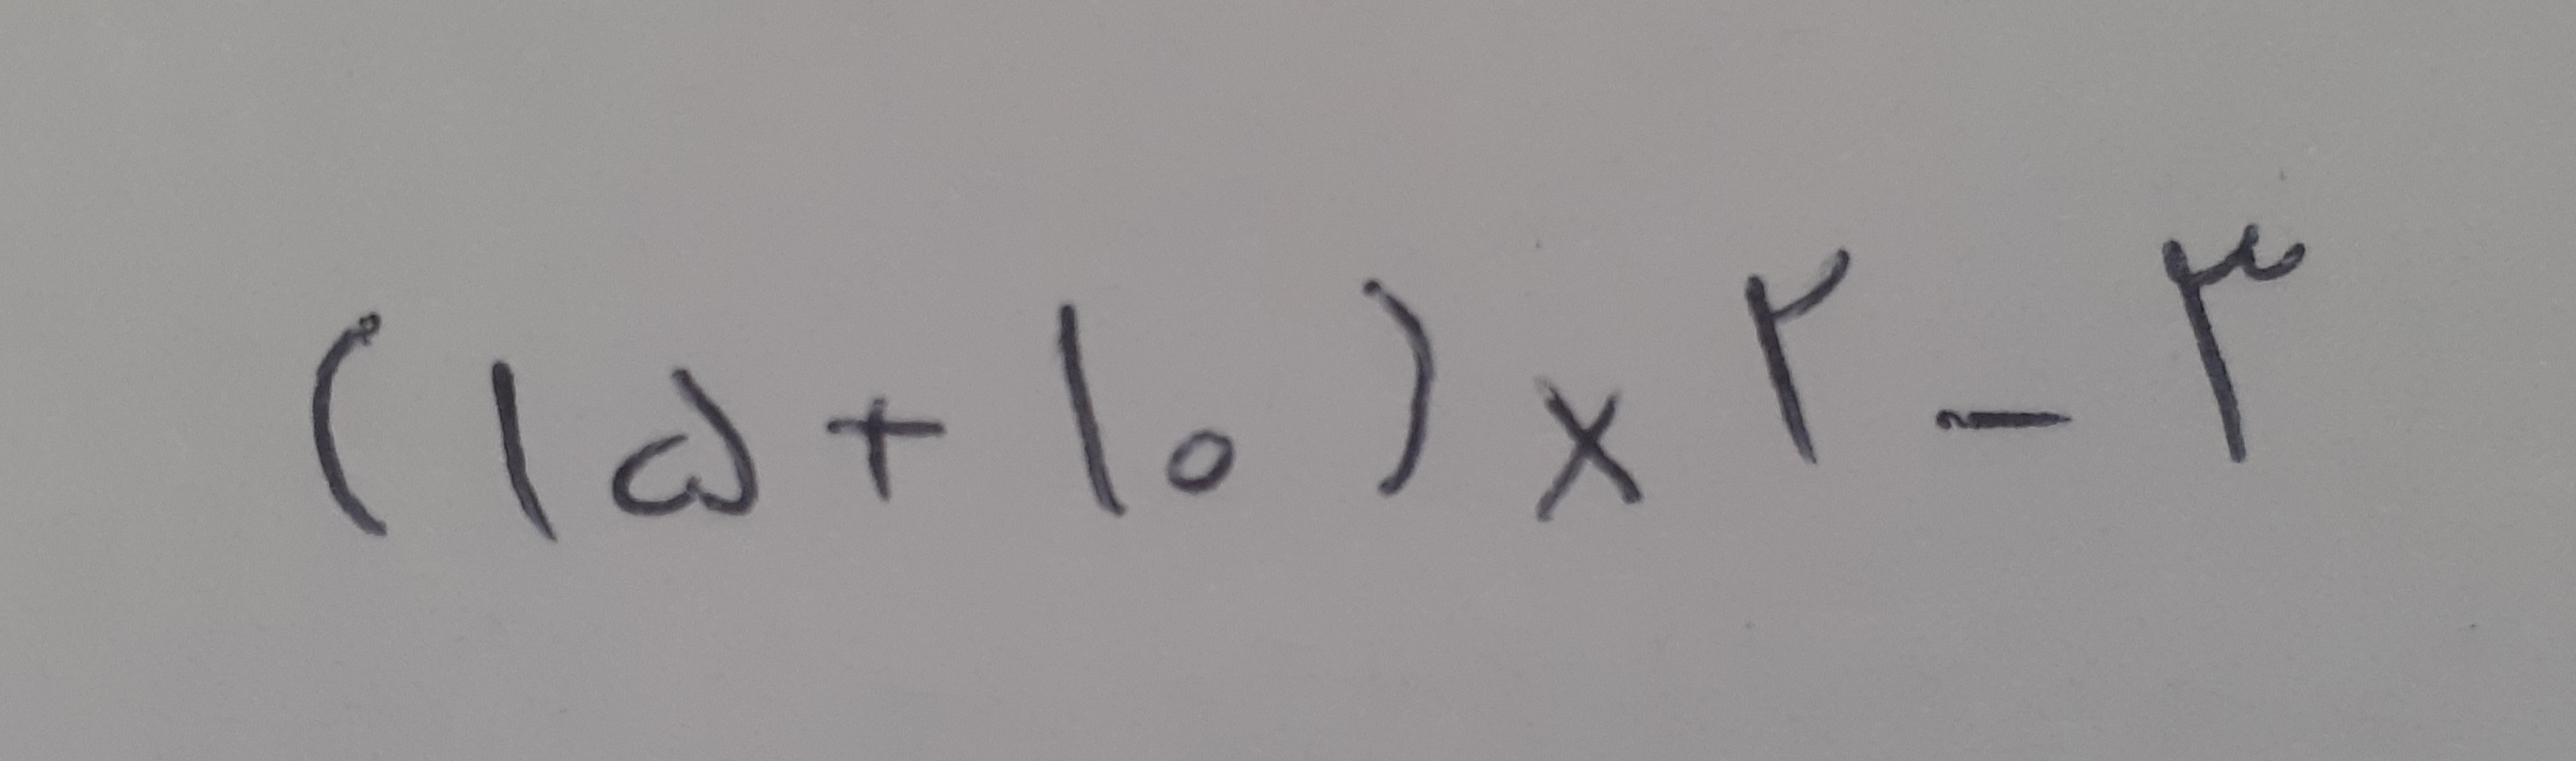 (۱۵+۱۰)×۲-۳